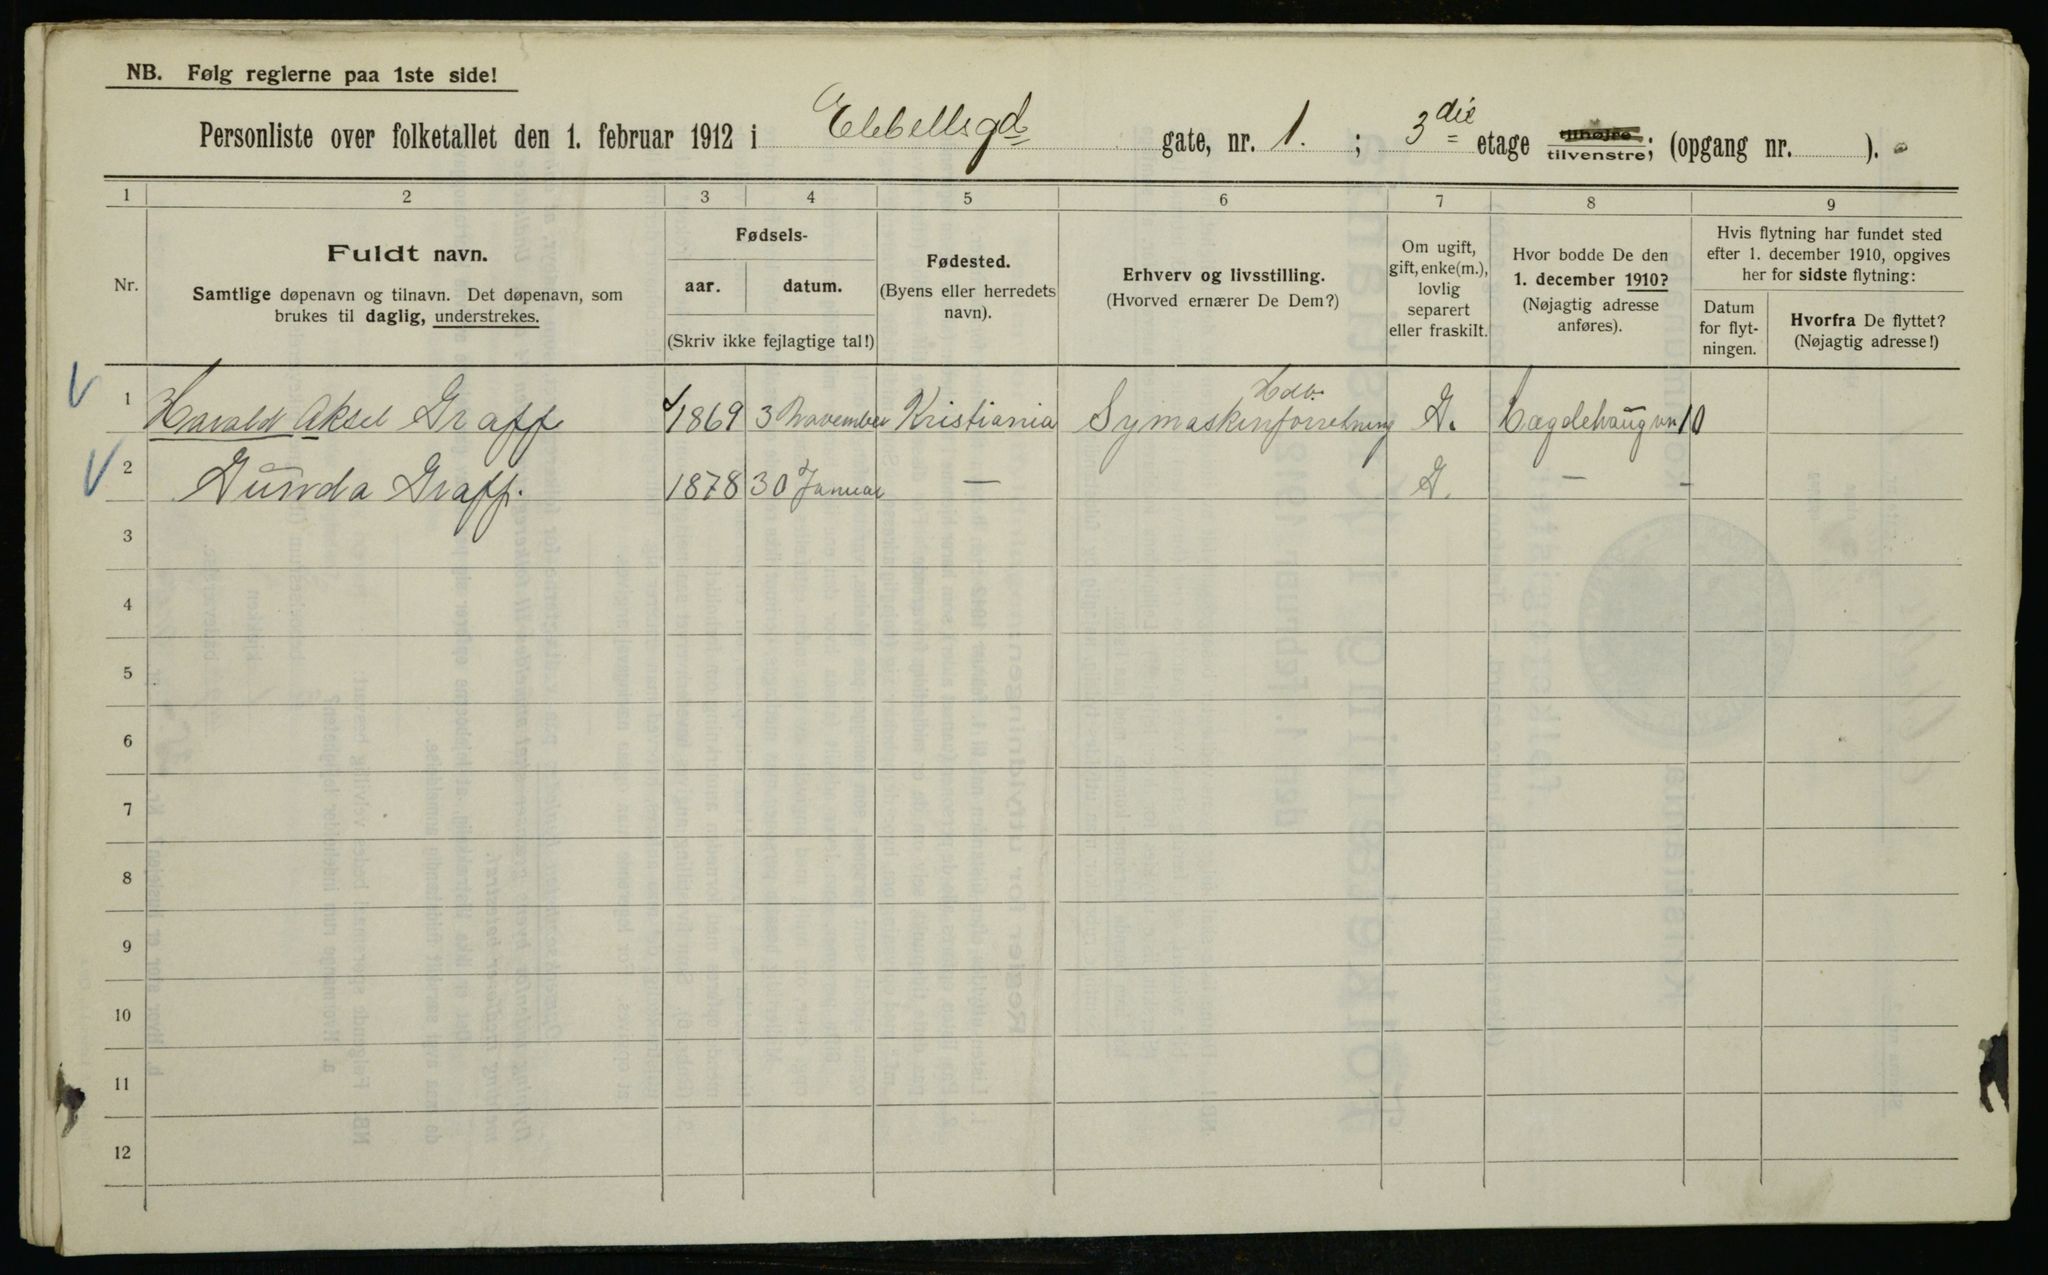 NB. Følg reglerne paa 1ste side!
Personliste over folketallet den 1. februar 1912 i Ebbellsgd gate, nr. 1. ; 3die etage tilhøjre tilvenstre; (opgang nr. ).
1 2 3 4 5 6 7 8 9
Nr.
Fuldt navn.
Samtlige døpenavn og tilnavn. Det døpenavn, som
brukes til daglig, understrekes.
Fødsels-
aar. datum.
(Skriv ikke fejlagtige tal!)
Fødested.
(Byens eller herredets
navn).
Erhverv og livsstilling.
(Hvorved ernærer De Dem?)
Om ugift,
gift, enke(m.),
lovlig
separert
eller fraskilt.
Hvor bodde De den
1. december 1910?
(Nøjagtig adresse
anføres).
Hvis flytning har fundet sted
efter 1. december 1910, opgives
her for sidste flytning:
Datum
for flyt-
ningen.
Hvorfra De flyttet?
(Nøjagtig adresse!)
1 Harald Aksel Graff 1869 3 November Kristiania Symaskinforretning Hdl. G. Hægdehaugvn 10
2 Gunda Graff. 1878 30 Januar — G. — -
3
4
5
6
7
8
9
10
11
12